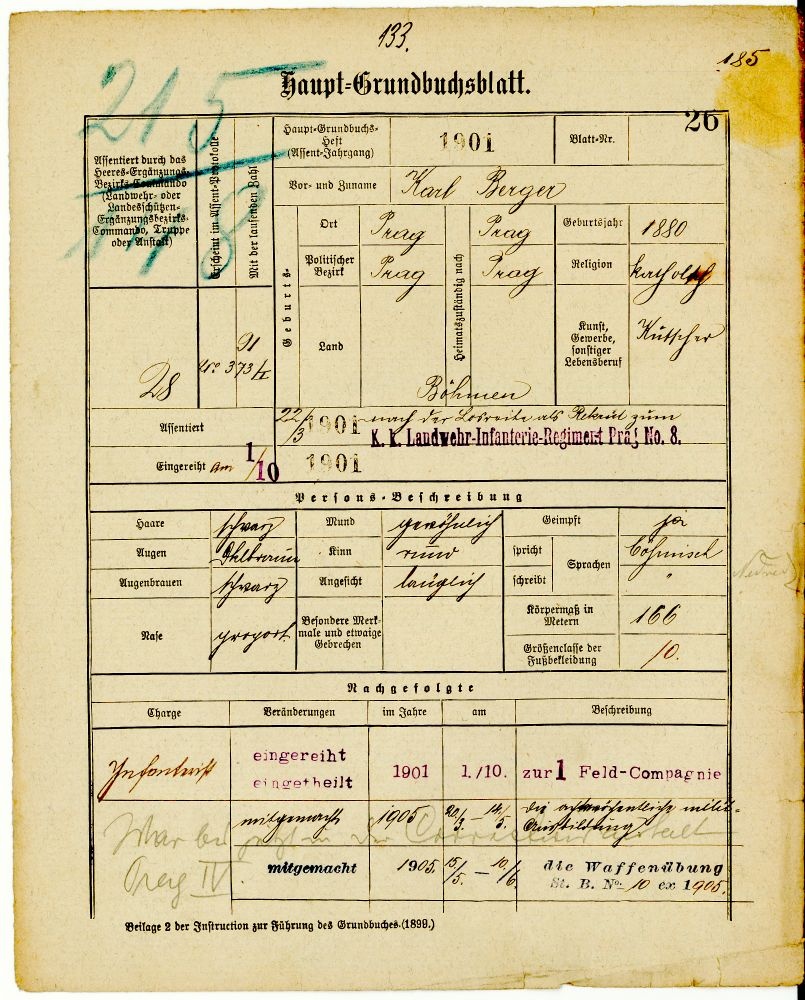 133.
185
Haupt-Grundbuchsblatt.
26
215
Assentiert durch das
Heeres-Ergänzungs-
Bezirks-Commando
(Landwehr- oder
Landesschützen-
Ergänzungsbezirks-
Commando, Truppe
oder Anstalt)
Erscheint im Assent-Protokolle
Mit der laufenden Zahl
28
91
No 373/I
Haupt-Grundbuchs-
Heft
(Assent-Jahrgang)
1901
Blatt-Nr.
Vor- und Zuname
Karl Berger
Geburts-
Ort
Prag
Politischer
Bezirk
Prag
Land
Heimatszuständig nach
Prag
Prag
Böhmen
Geburtsjahr
1880
Religion
katholisch
Kunst,
Gewerbe,
sonstiger
Lebensberuf
Kutscher
Assentiert
22/3 1901 nach der Losreihe als Rekrut zum
K. k. Landwehr-Infanterie-Regiment Prag No. 8.
Eingereiht am 1/10 1901
Persons-Beschreibung
Haare schwarz
Mund gewöhnlich
Geimpft ja
Augen
Kinn rund
spricht
Sprachen
böhmisch
Augenbrauen schwarz
Angesicht länglich
schreibt "
Nase proport.
Besondere Merk-
male und etwaige
Gebrechen
Körpermaß in
Metern
166
Größenclasse der
Fußbekleidung
10.
Nachgefolgte
Charge Veränderungen im Jahre am Beschreibung
Infanterist
eingereiht
eingetheilt
1901 1./10. zur 1 Feld-Compagnie
mitgemacht 1905 20/3. – 14/5. die achtwöchentliche milit.
Ausbildung
War bis jetzt in der
Prag IV
mitgemacht 1905. 15/5. – 10/6. die Waffenübung
St. B. No 10 ex 1905.
Beilage 2 der Instruction zur Führung des Grundbuches.(1899.)